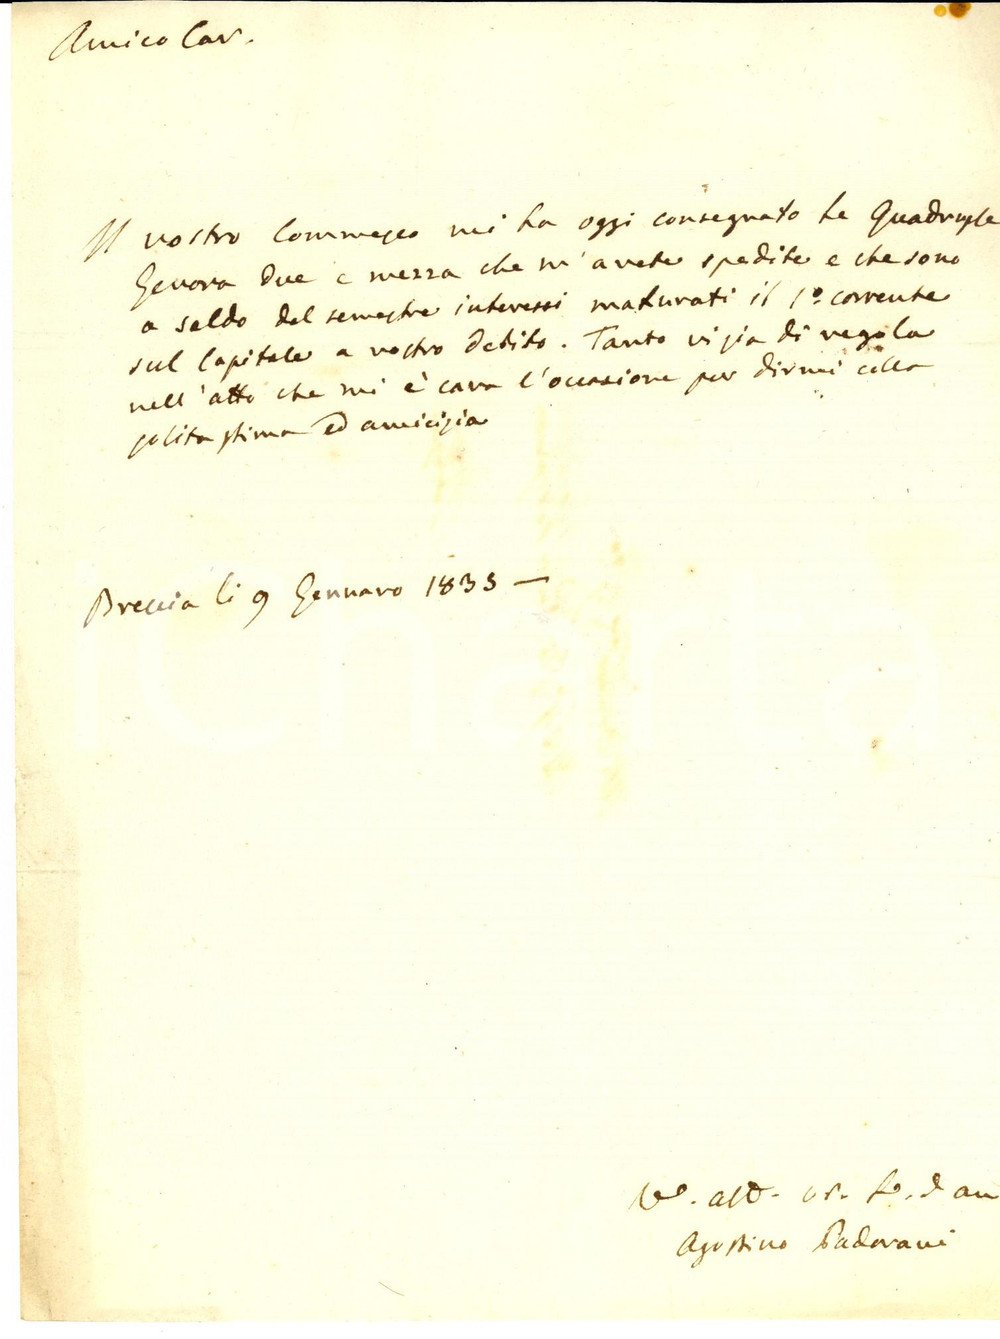 Amico Car.
Il vostro Commesso mi ha oggi consegnato le Quadruple
Genova due e mezza che m'avete spedite e che sono
a saldo del semestre interessi maturati il 1º corrente
sul Capitale a vostro debito. Tanto vi sia di regola
nell'atto che mi è cara l'occasione per dirmi colla
solita stima ed amicizia
Brescia li 9 Gennaro 1833 —
Agostino Padovani
iCharta